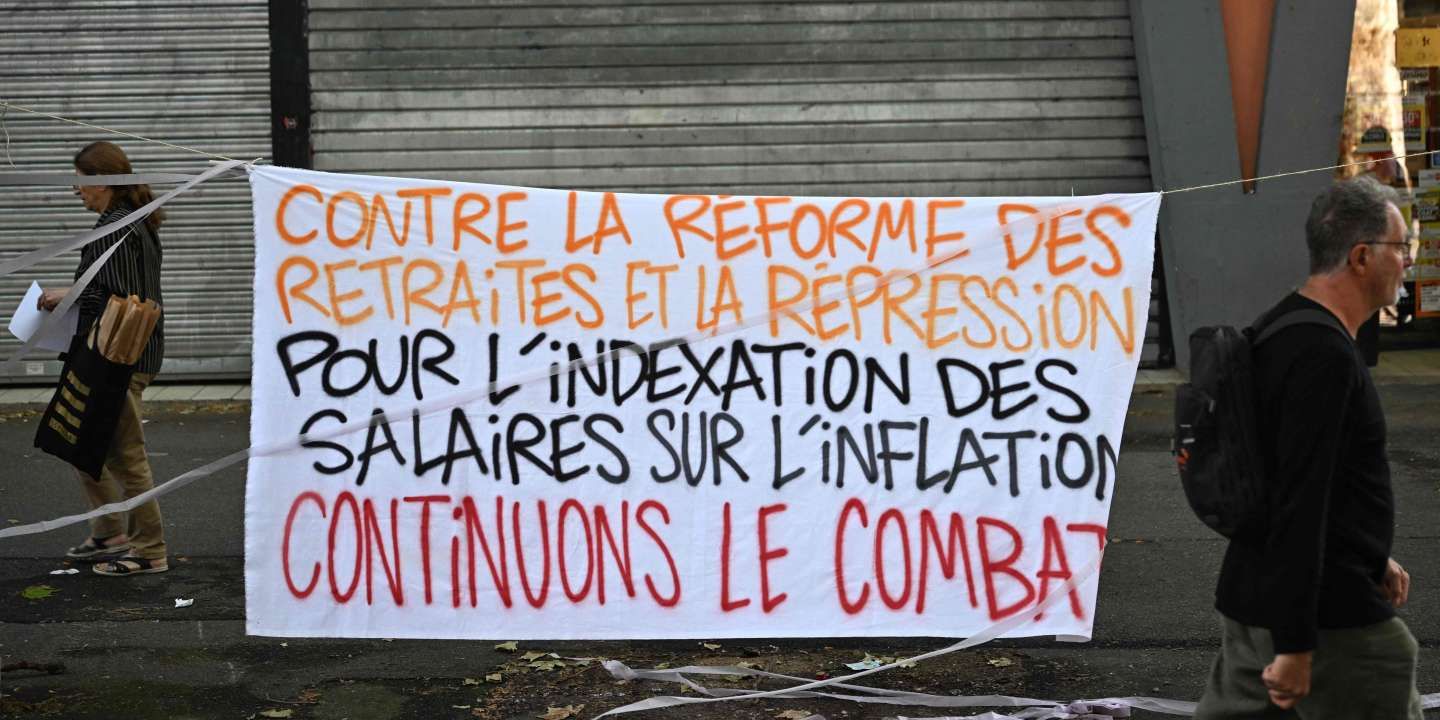 CONTRE LA RÉFORME DES
RETRAiTES ET LA RÉPRESSiON
POUR L'iNDEXATiON DES
SALAiRES SUR L'iNFLATiON
CONTiNUONS LE COMBAT